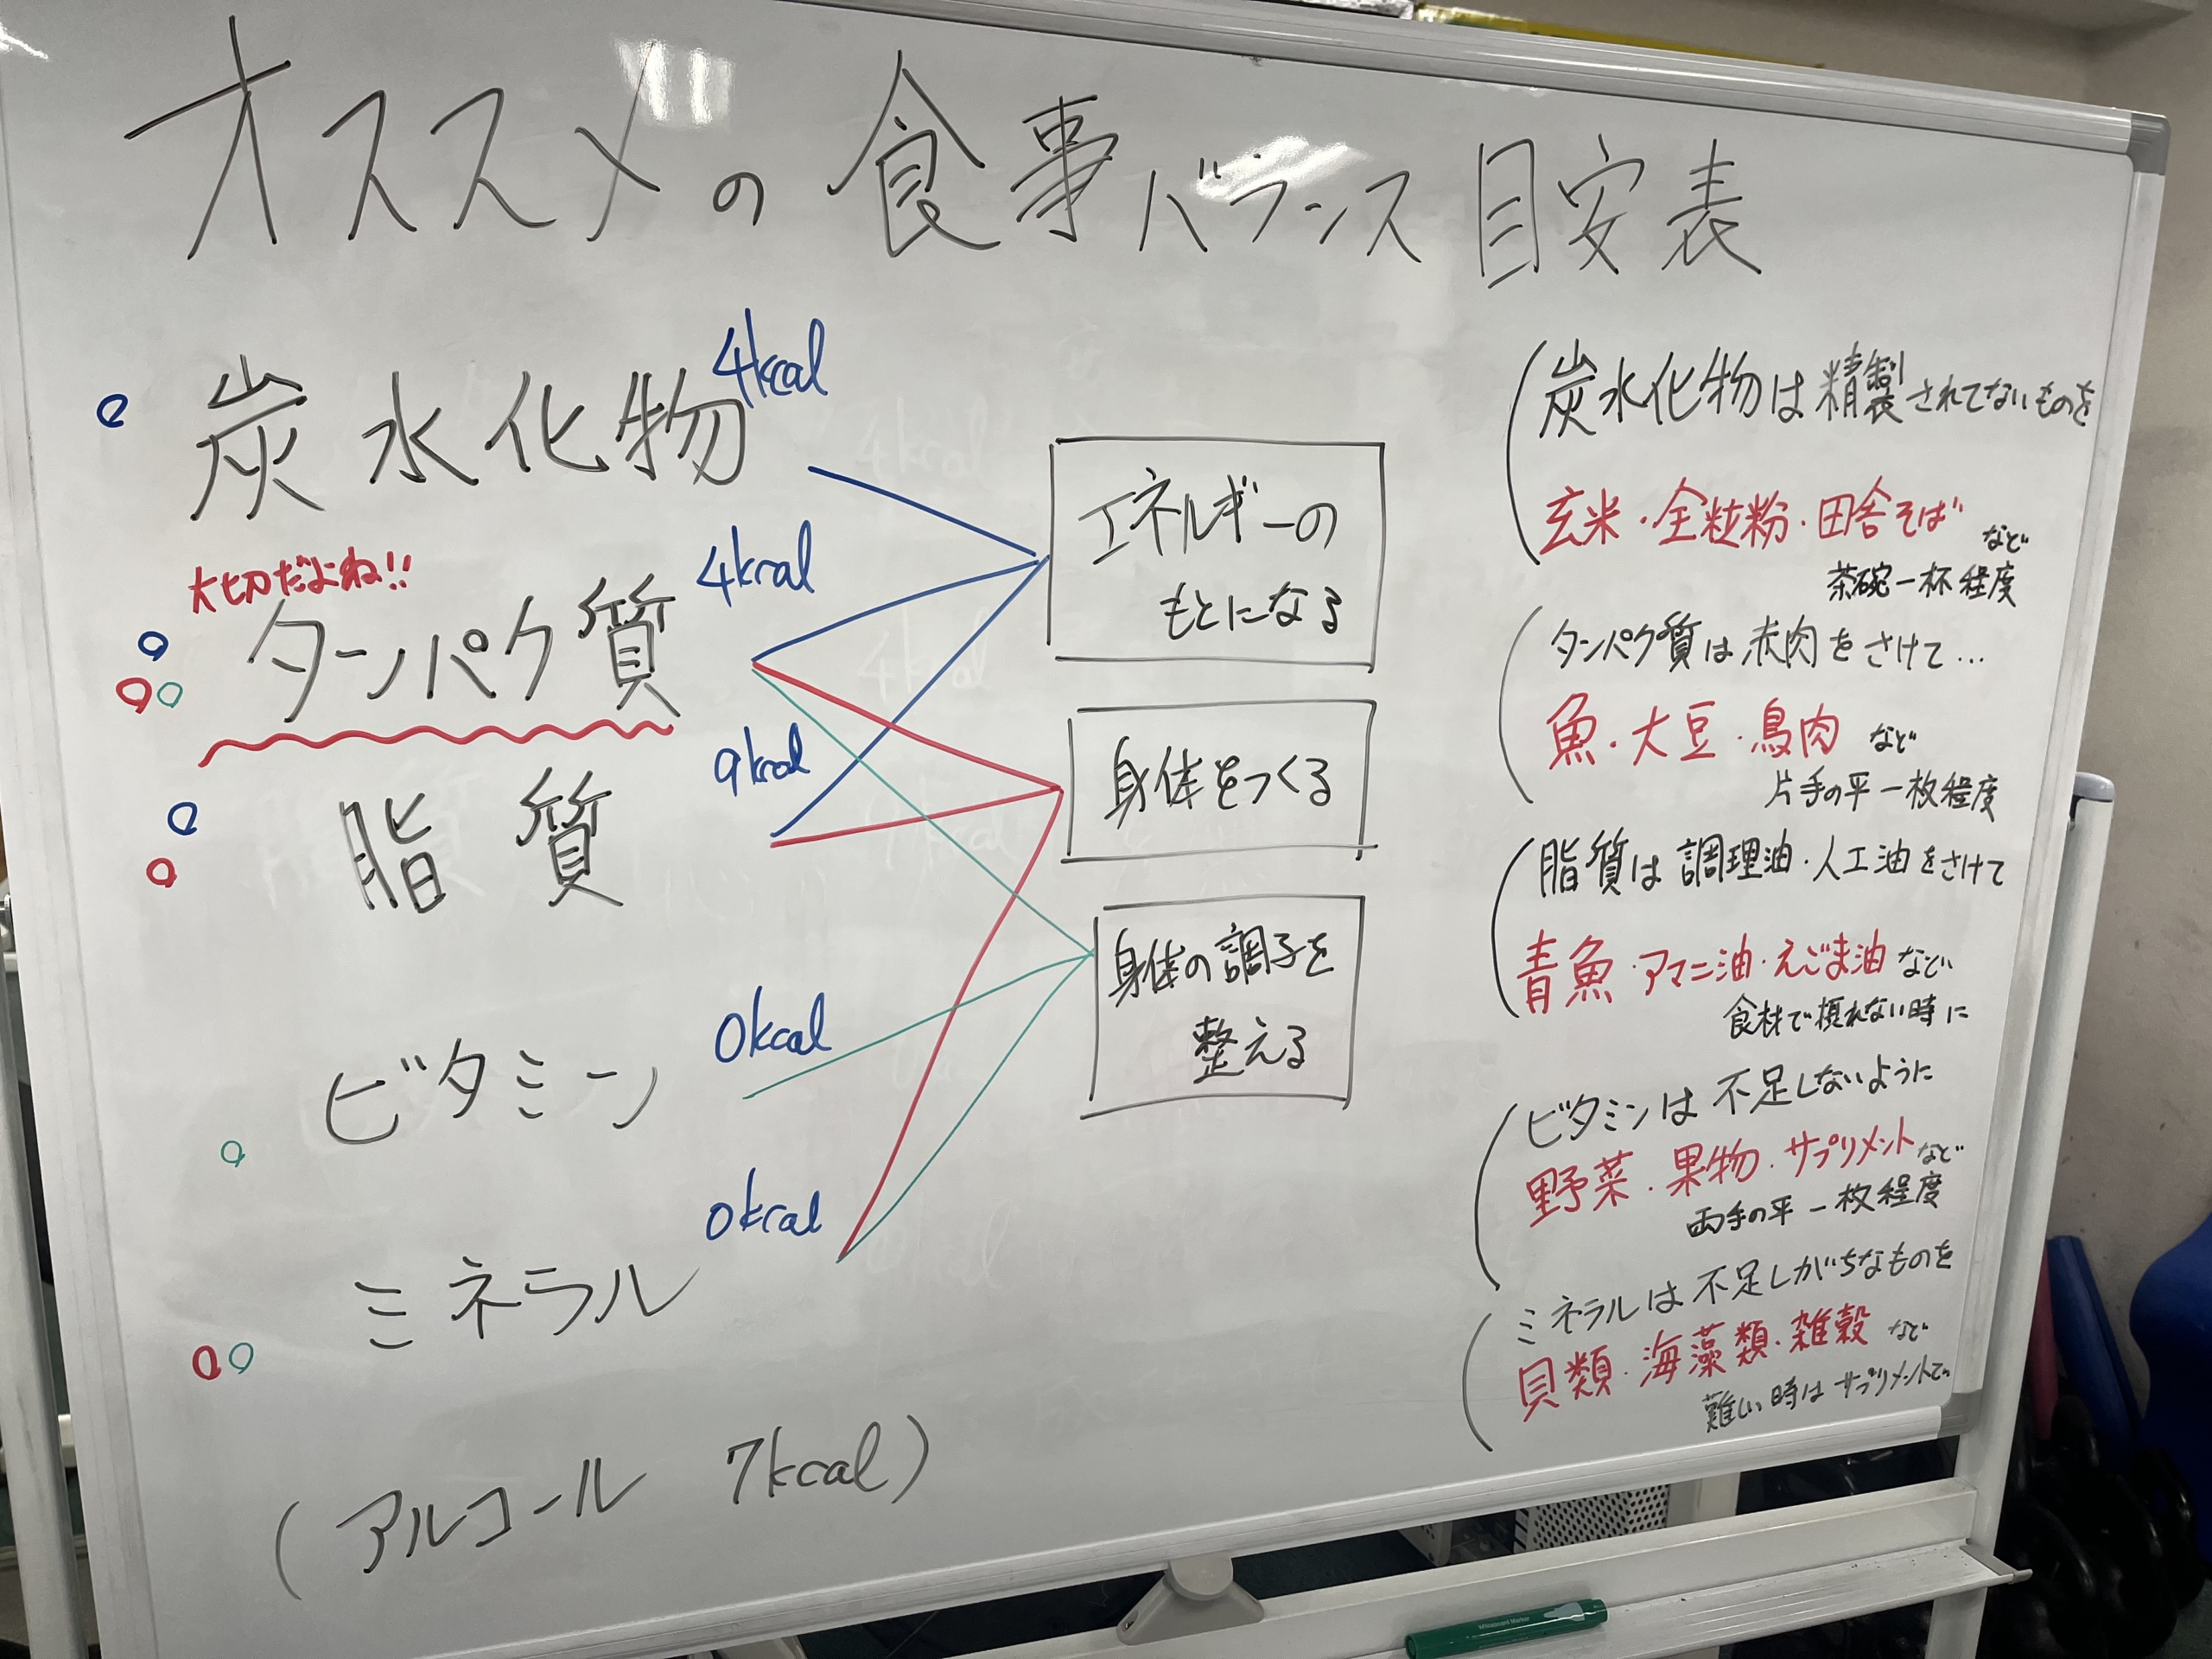 オススメの食事バランス目安表
炭水化物 4kcal
大切だよね!!
タンパク質 4kcal
脂質 9kcal
ビタミン 0kcal
ミネラル 0kcal
(アルコール 7kcal)
エネルギーの
もとになる
身体をつくる
身体の調子を
整える
炭水化物は精製されてないものを
玄米・全粒粉・田舎そば など
茶碗一杯程度
タンパク質は赤肉をさけて…
魚・大豆・鳥肉 など
片手の平一枚程度
脂質は調理油・人工油をさけて
青魚・アマニ油・えごま油 など
食材で摂れない時に
ビタミンは不足しないように
野菜・果物・サプリメント など
両手の平一枚程度
ミネラルは不足しがちなものを
貝類・海藻類・雑穀 など
難しい時はサプリメントで
Whiteboard Marker